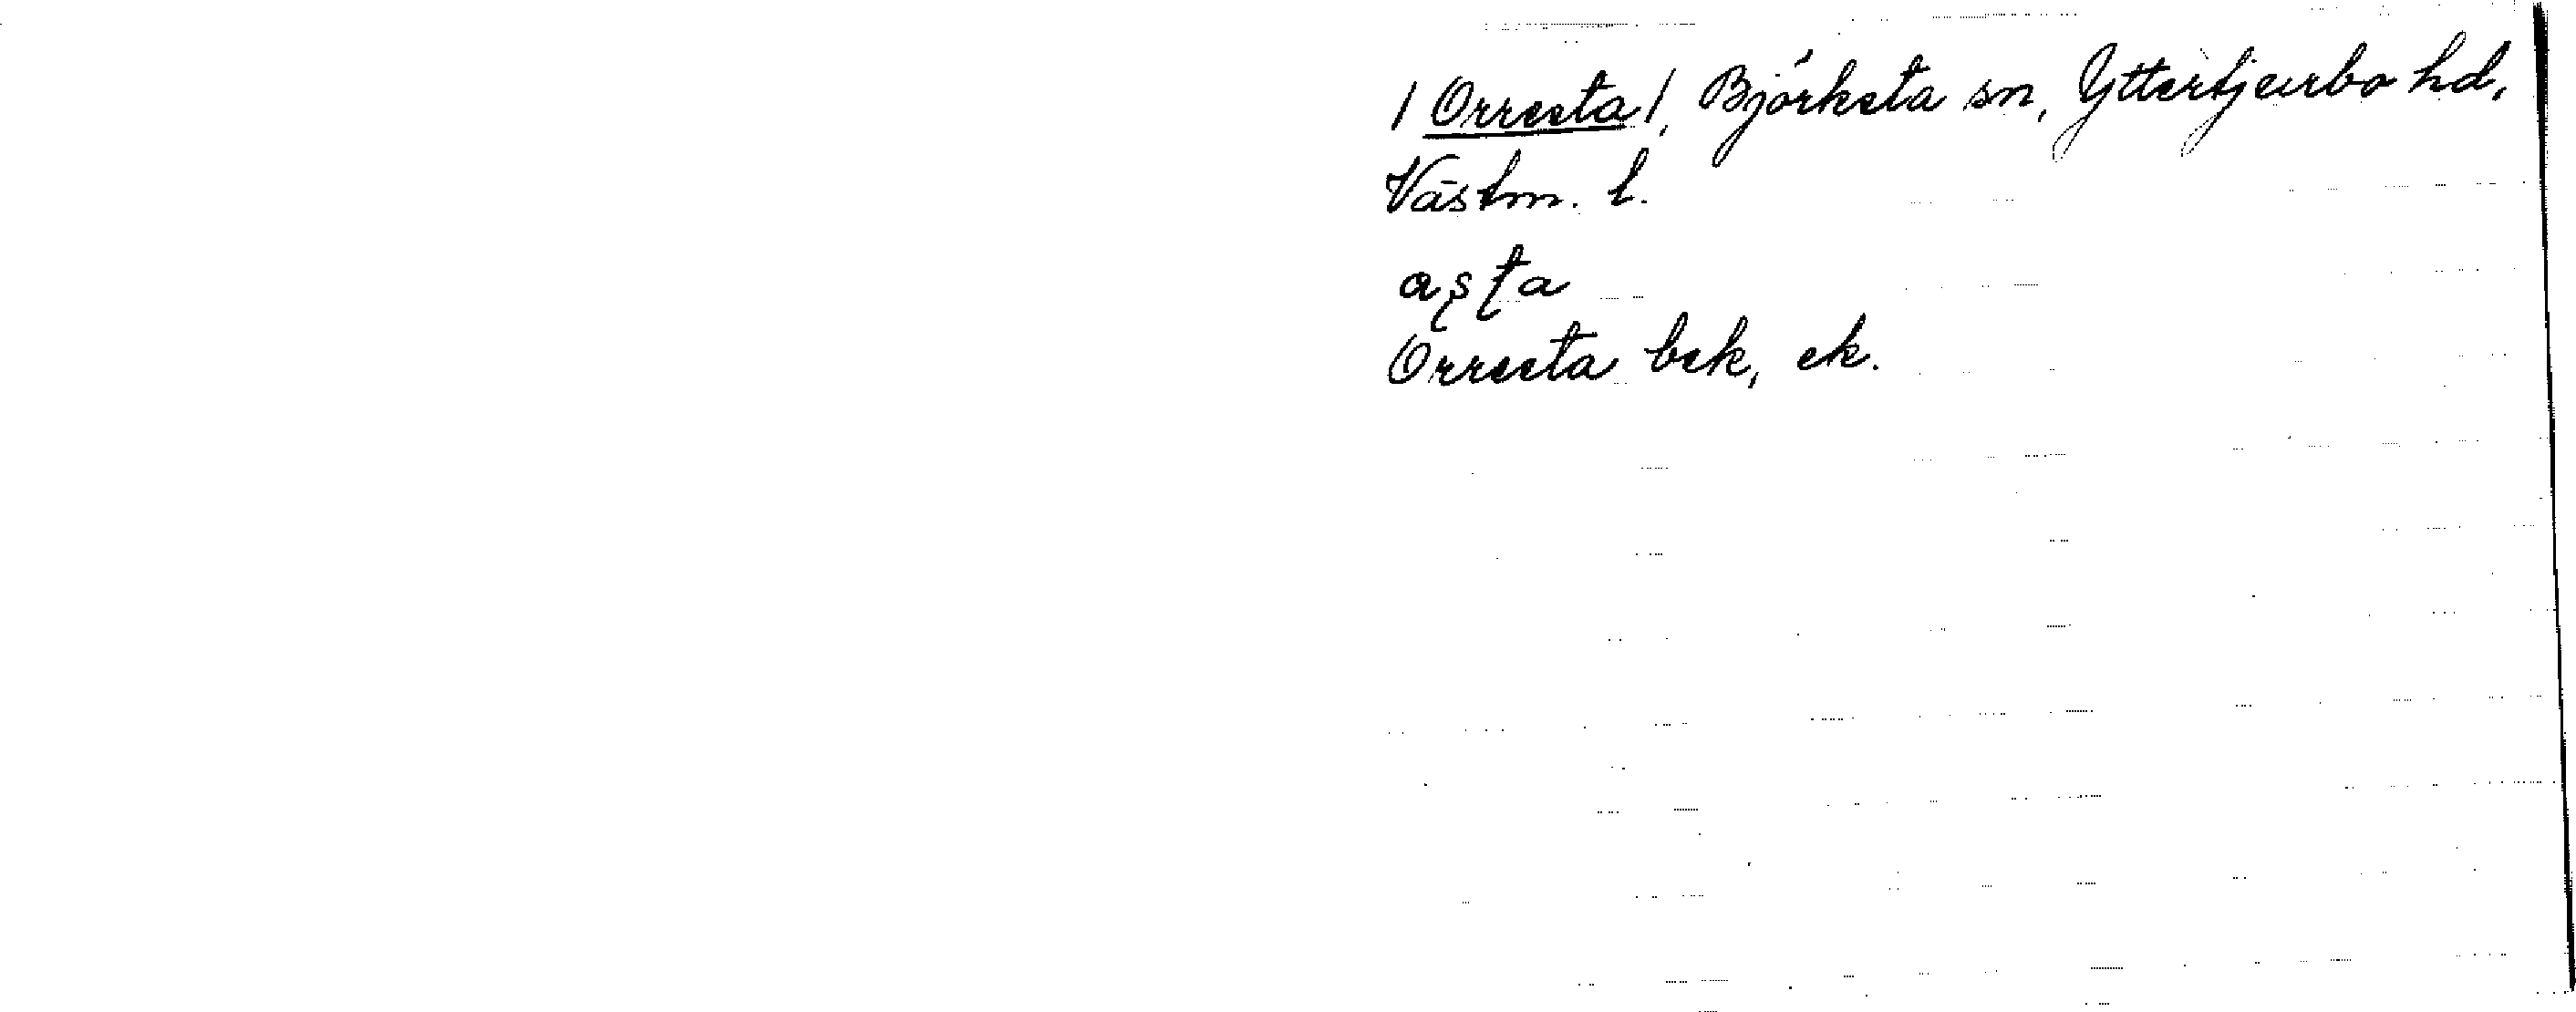 /Orresta/, Björksta sn, Yttertjurbo hd,
Västm. l.
aʂʈa
Orresta bsk, ek.